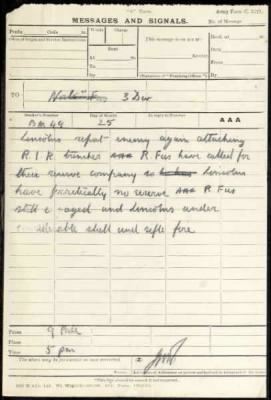 "C" Form.
Army Form C. 2121.
MESSAGES AND SIGNALS.
No. of Message
Prefix Code m.
Words
Charge
This message is on a/c of:
Recd. at m.
Office of Origin and Service Instructions.
Sent
Date
At m.
Service.
From
To
By
(Signature of "Franking Officer.")
By
TO
3 Div
Sender's Number
Day of Month
In reply to Number
AAA
BM 49
25
Lincolns report enemy again attacking
R.I.R. trenches aaa R. Fus have called for
their reserve company so Lincolns
have practically no reserve aaa R. Fus
still engaged and Lincolns under
considerable shell and rifle fire.
From
9 Bde
Place
Time
5 pm
The above may be forwarded as now corrected.
(Z)
Censor.
Signature of Addressor or person authorised to telegraph in his name.